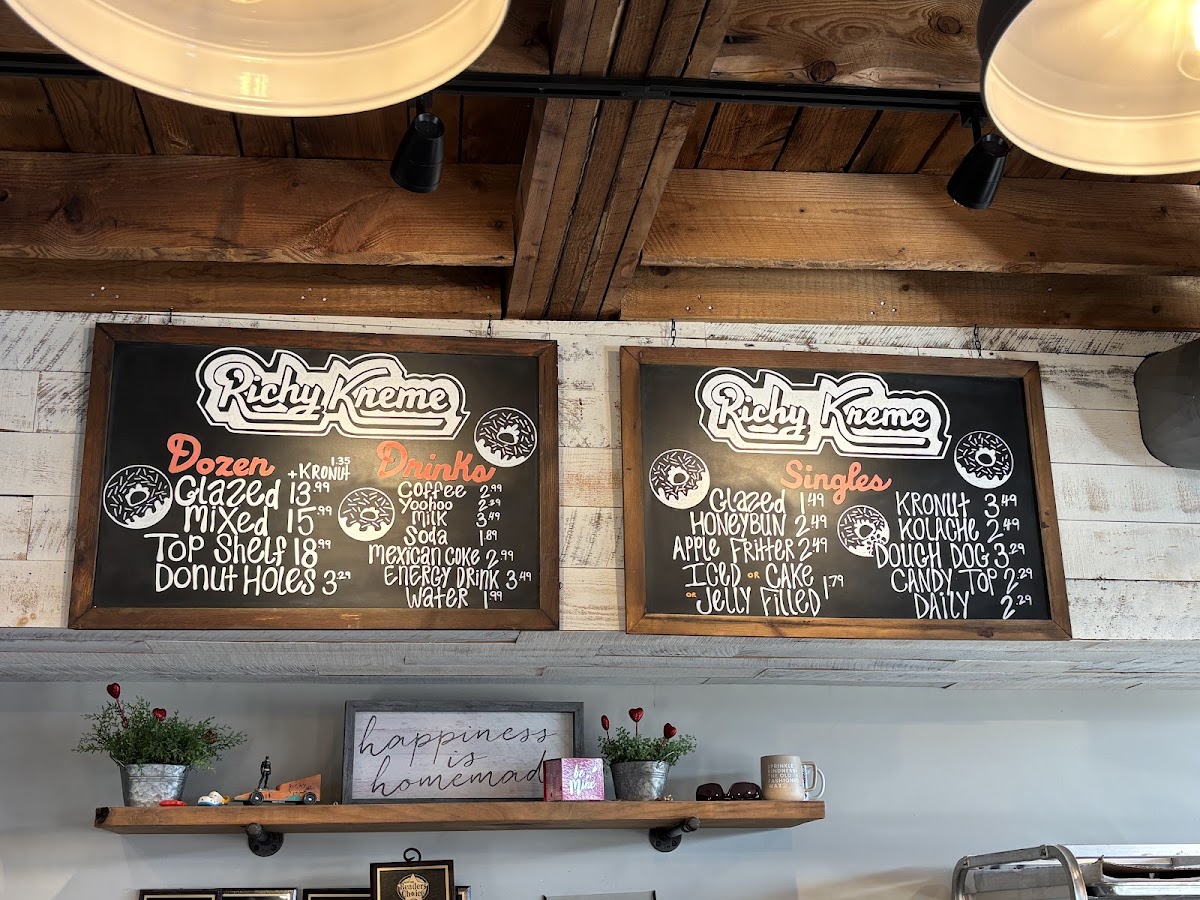 Richy Kreme
Dozen
+ KRONUT 1.35
Glazed 13.99
Mixed 15.99
Top Shelf 18.99
Donut Holes 3.29
Drinks
Coffee 2.99
Yoohoo 2.39
Milk 3.49
Soda 1.89
Mexican Coke 2.99
Energy Drink 3.49
Water 1.99
Richy Kreme
Singles
Glazed 1.49
HoneyBun 2.49
Apple Fritter 2.49
Iced or Cake
or Jelly Filled 1.79
Kronut 3.49
Kolache 2.49
Dough Dog 3.29
Candy Top 2.29
Daily 2.29
happiness
is
homemad
be
Mine
SPRINKLE
KINDNESS
THE OLD
FASHIONED
WAY
Readers
Choice